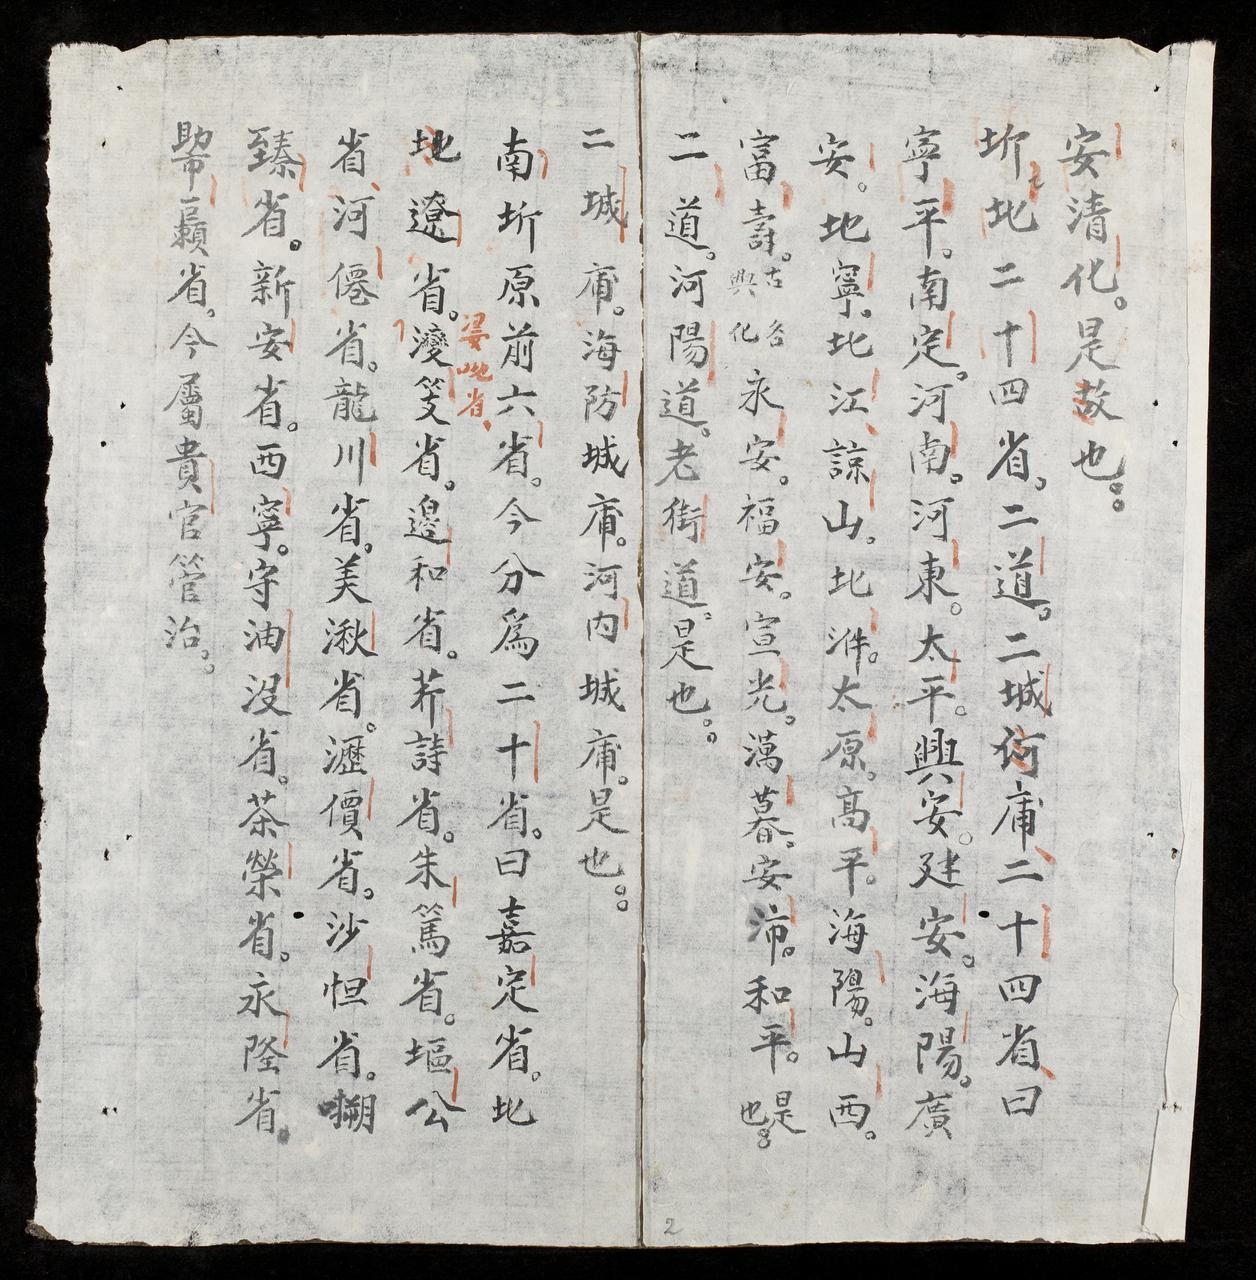 安清化。是故也。。
圻北二十四省。二道。二城何庯二十四省曰
寧平。南定。河南。河東。太平。興安。建安。海陽。廣
安。北寧。北江諒山。北𣴓。太原。高平。海陽。山西。
富壽。古名興化永安。福安。宣光。萬暮。安沛。和平。是也。。
二道。河陽道。老街道。是也。。
二城庯。海防城庯。河内城庯。是也。。
南圻原前六省。今分爲二十省。曰嘉定省。北
地遼省。灓笅省。邊和省。芥詩省。朱篤省。堀公
婆地省
省河僊省。龍川省。美湫省。瀝價省。沙怛省。
臻省。新安省。西寧。守油沒省。茶榮省。永隆省。
省。今屬貴官管治。。
2